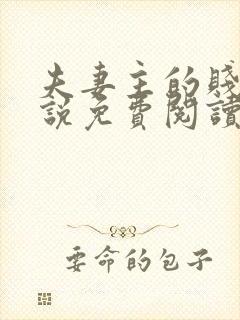 夫妻主的賤
說免費閱讀
要命的包子